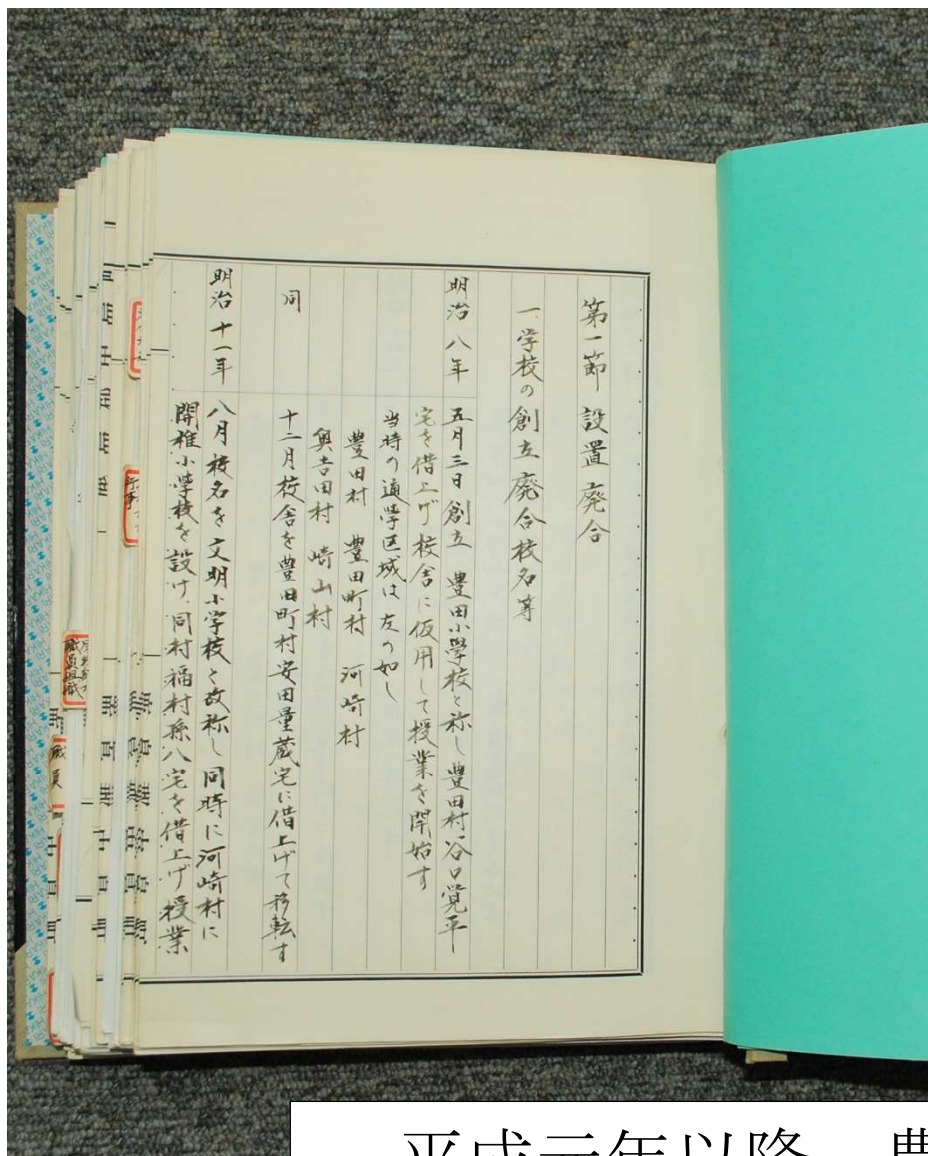 第一節 設置廃合
一、学校の創立廃合校名等
明治八年 五月三日創立 豊田小學校と称し豊田村谷口覚平
宅を借上げ校舎に仮用して授業を開始す
当時の通學区域は左の如し
豊田村 豊田町村 河崎村
奥吉田村 崎山村
同 十二月校舎を豊田町村安田量蔵宅に借上げて移転す
明治十一年 八月校名を文明小学校と改称し同時に河崎村に
開稚小學校を設け、同村福村孫八宅を借上げ授業
職員
平成元年以降